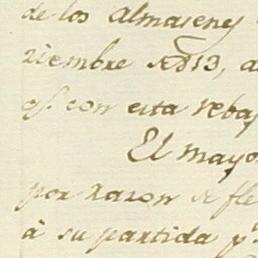 de los Almasenes
ziembre 1813, a
qe. con esta rebaj
El mayo
por razon de fle
á su partida pr.